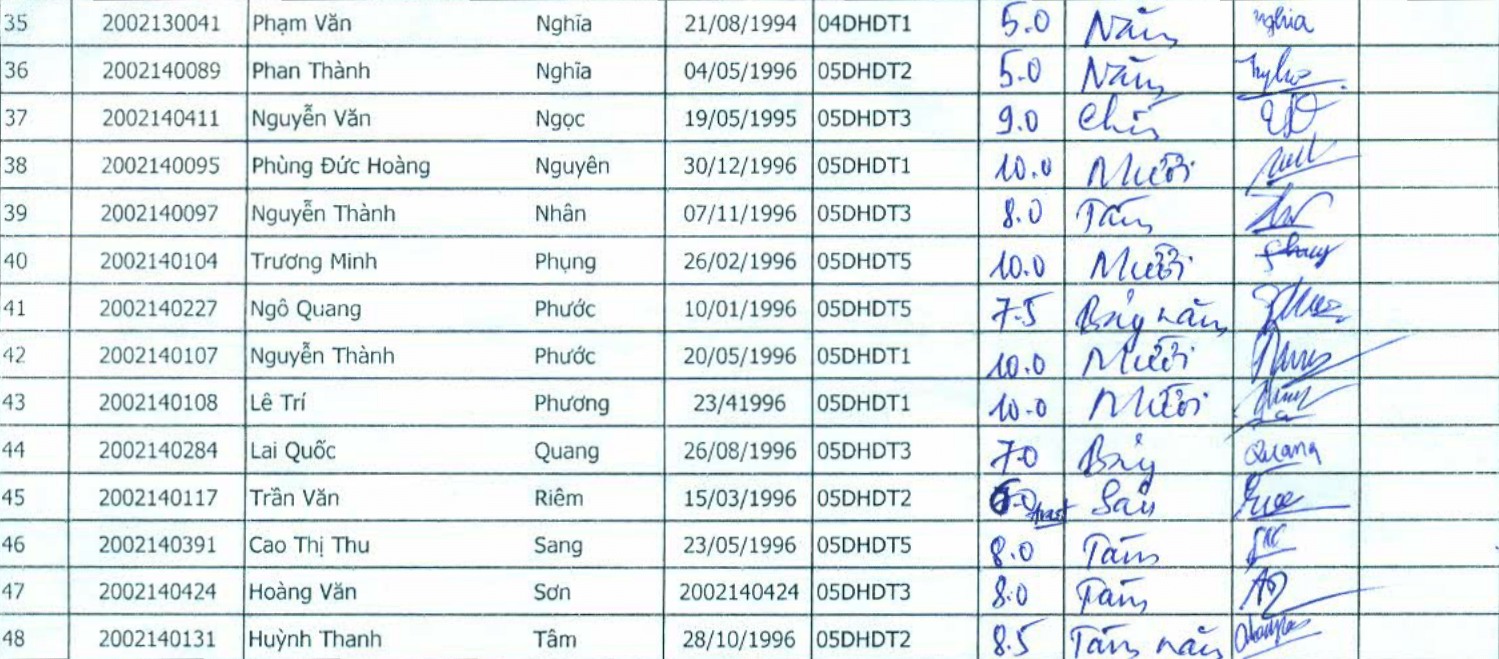 35 2002130041 Phạm Văn Nghĩa 21/08/1994 04DHDT1 5.0 Năm Nghia
36 2002140089 Phan Thành Nghĩa 04/05/1996 05DHDT2 5.0 Năm
37 2002140411 Nguyễn Văn Ngọc 19/05/1995 05DHDT3 9.0 Chín
38 2002140095 Phùng Đức Hoàng Nguyên 30/12/1996 05DHDT1 10.0 Mười
39 2002140097 Nguyễn Thành Nhân 07/11/1996 05DHDT3 8.0 Tám
40 2002140104 Trương Minh Phụng 26/02/1996 05DHDT5 10.0 Mười
41 2002140227 Ngô Quang Phước 10/01/1996 05DHDT5 7.5 Bảy năm
42 2002140107 Nguyễn Thành Phước 20/05/1996 05DHDT1 10.0 Mười
43 2002140108 Lê Trí Phương 23/41996 05DHDT1 10.0 Mười
44 2002140284 Lai Quốc Quang 26/08/1996 05DHDT3 7.0 Bảy Quang
45 2002140117 Trần Văn Riêm 15/03/1996 05DHDT2 6.0 Sáu
46 2002140391 Cao Thị Thu Sang 23/05/1996 05DHDT5 8.0 Tám
47 2002140424 Hoàng Văn Sơn 2002140424 05DHDT3 8.0 Tám
48 2002140131 Huỳnh Thanh Tâm 28/10/1996 05DHDT2 8.5 Tám năm